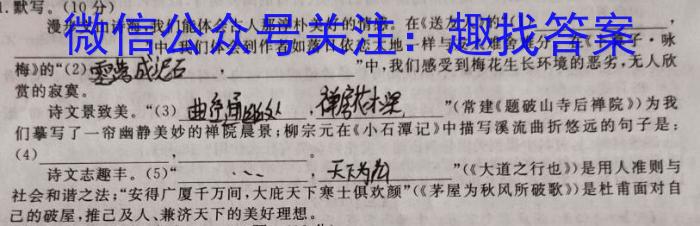 1.默写。(10分)
微信公众号关注：趣找答案
漫步 诗海,我们能体会古人那 美好的情谊。在《送
中,我们体味到作者如落 依恋大地一样与 难舍 ·咏
梅》的“(2)零落成泥石,”中,我们感受到梅花生长环境的恶劣,无人欣
赏的寂寞。
诗文景致美。“(3)曲径通幽处,禅房花木深”(常建《题破山寺后禅院》)为我
们摹写了一帘幽静美妙的禅院晨景;柳宗元在《小石潭记》中描写溪流曲折悠远的句子是:
(4),。
诗文志趣丰。(5)“···,天下为公”(《大道之行也》)是用人准则与
社会和谐之法;“安得广厦千万间,大庇天下寒士俱欢颜”(《茅屋为秋风所破歌》)是杜甫面对自
己的破屋,推己及人、兼济天下的美好理想。